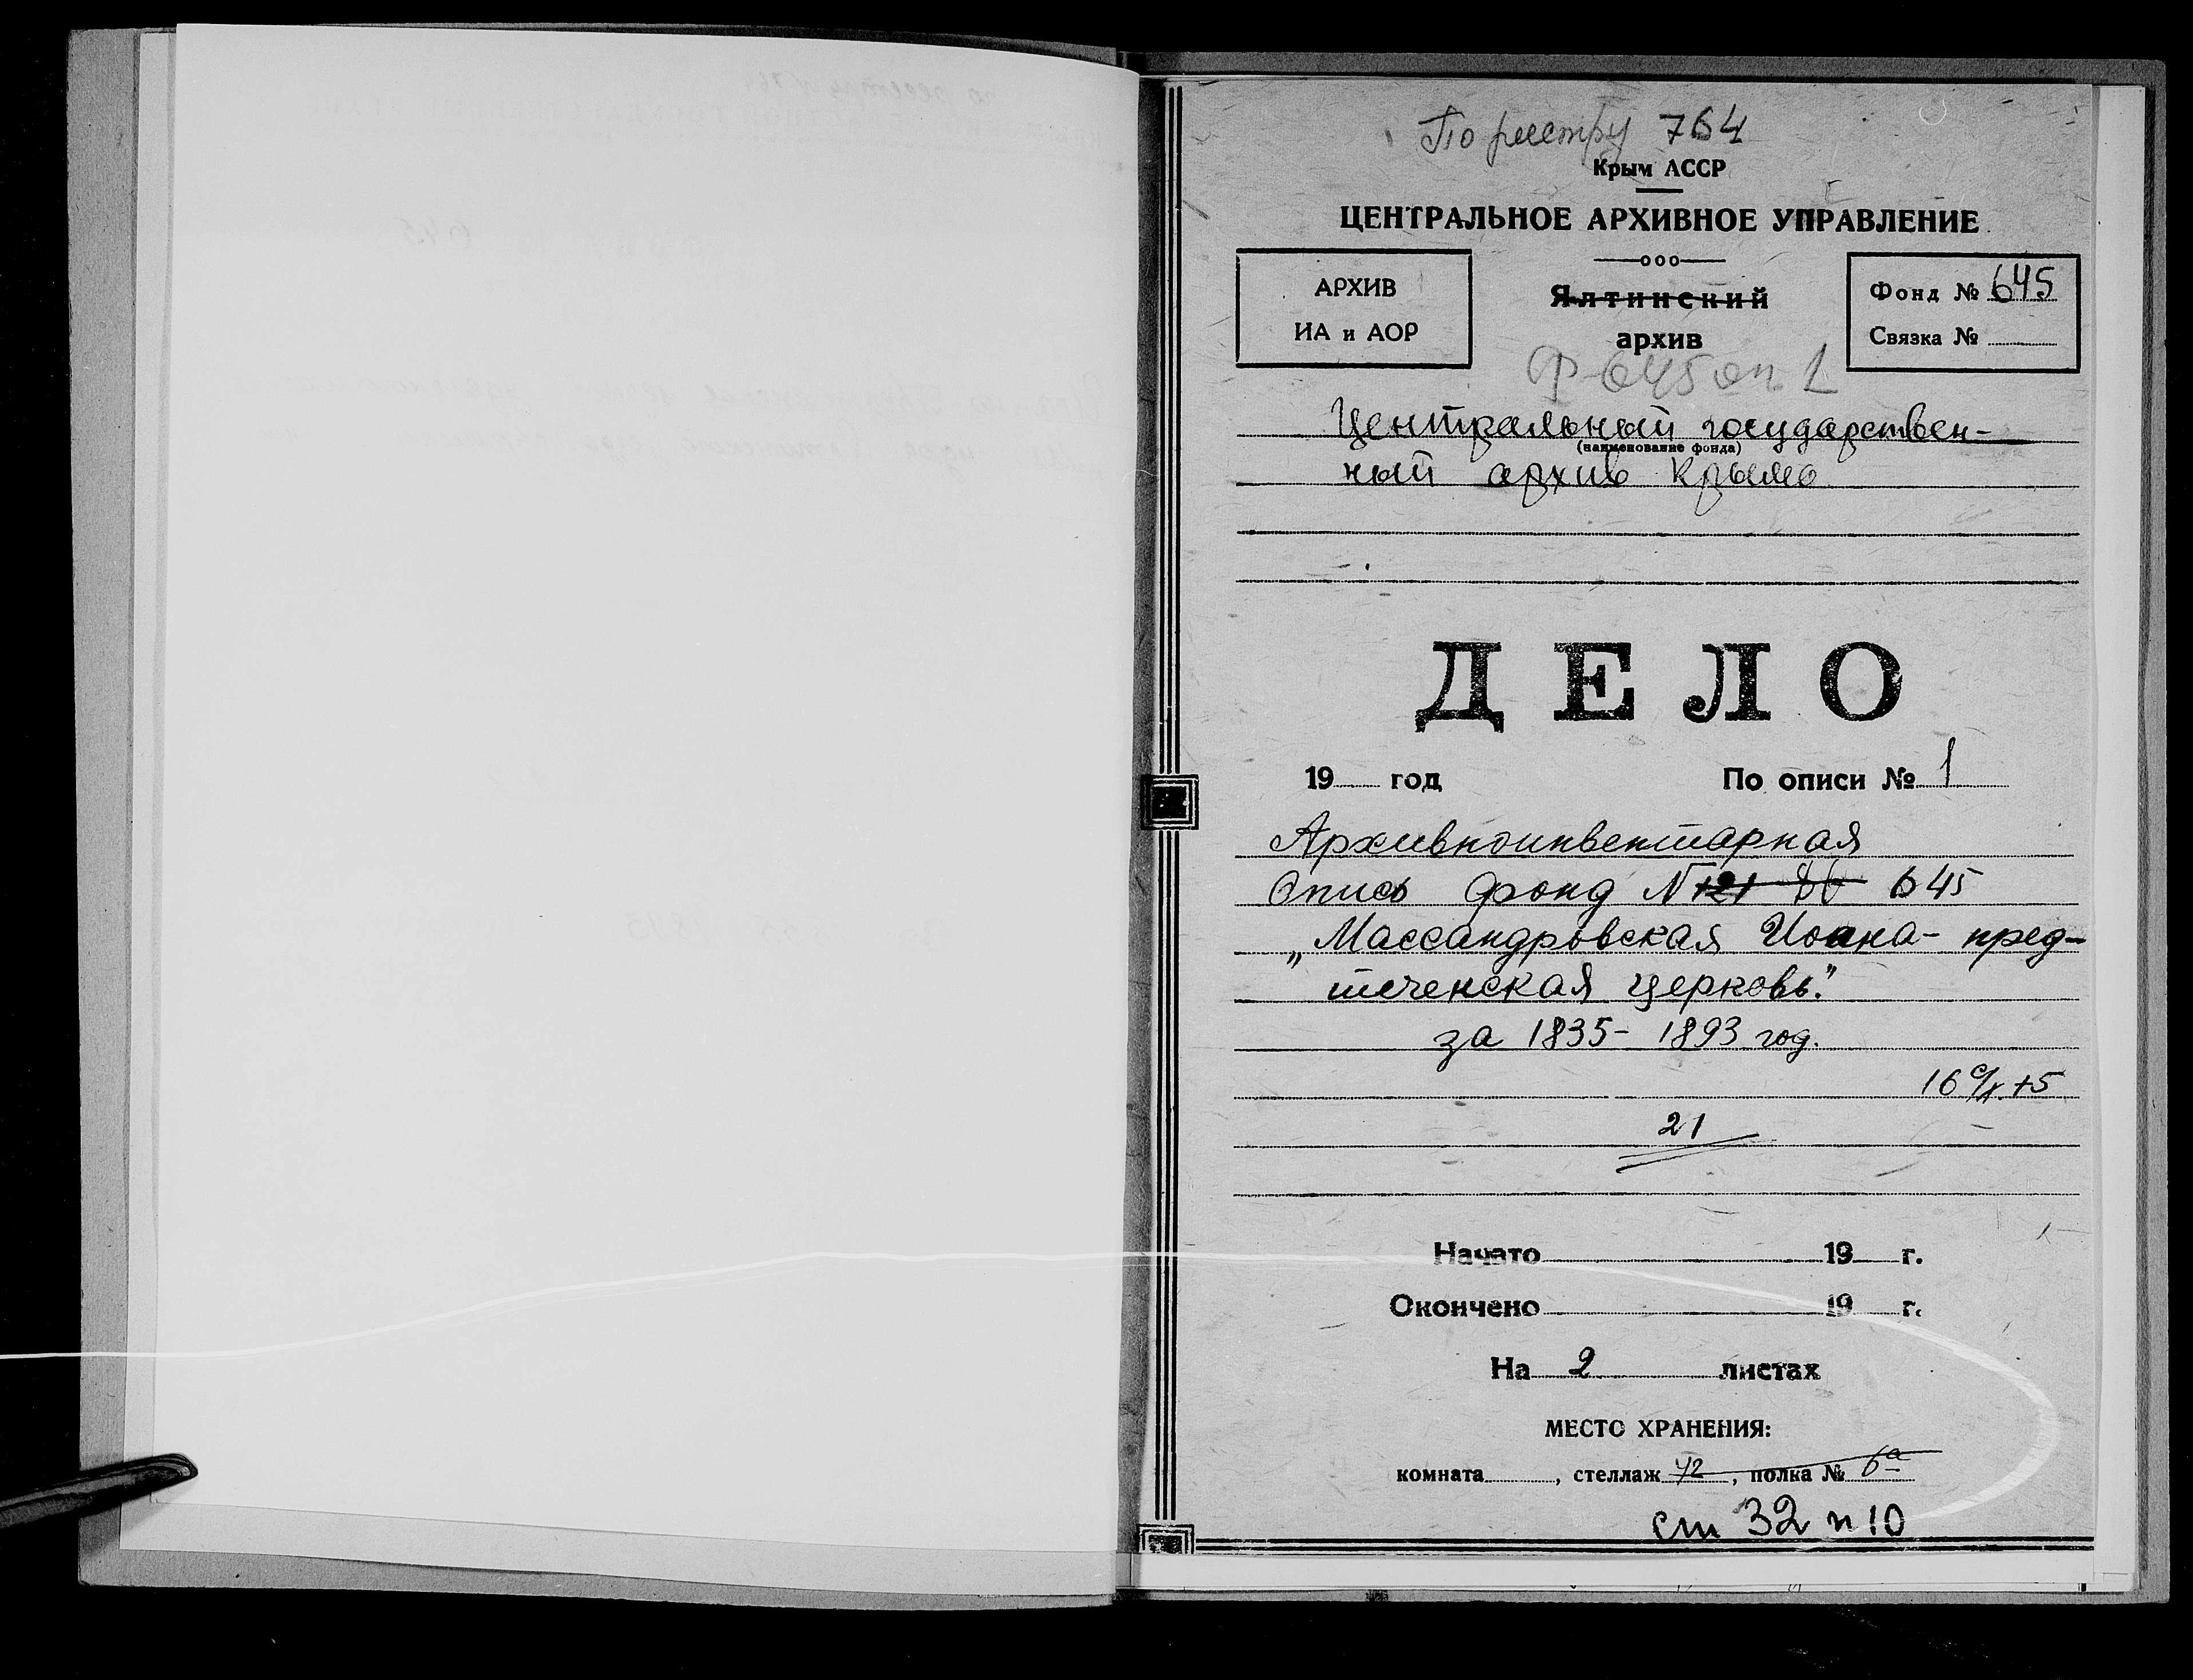 По реестру 764
Крым АССР
ЦЕНТРАЛЬНОЕ АРХИВНОЕ УПРАВЛЕНИЕ
АРХИВ
ИА и АОР
Ялтинский
архив
Фонд № 645
Связка №
Ф-645 оп. 1
Центральный государствен-
(наименование фонда)
ный архив Крыма
ДЕЛО
19 год
По описи № 1
Архивноинвентарная
Опись фонд N 121 86 645
„Массандровская Иоана-пред-
теченская церковь."
за 1835-1893 год.
16 +5
21
Начато 19 г.
Окончено 19 г.
На 2 листах
МЕСТО ХРАНЕНИЯ:
комната , стеллаж 42 , полка № 6а
ст 32 п 10